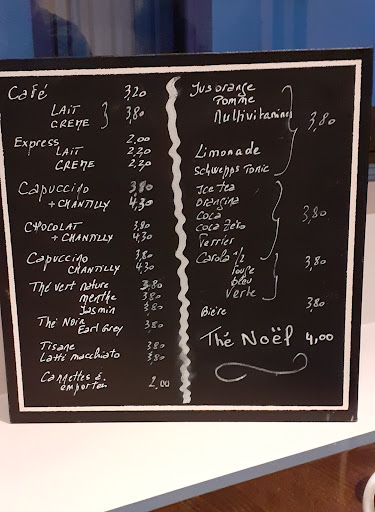 Café 3,20
LAIT
CREME } 3,80
Express 2,00
LAIT 2,20
CREME 2,20
Capuccino 3,80
+ CHANTILLY 4,30
CHOCOLAT 3,80
+ CHANTILLY 4,30
Capuccino 3,80
CHANTILLY 4,30
Thé vert nature 3,80
menthe 3,80
Jasmin 3,80
Thé Noir
Earl Grey 3,80
Tisane 3,80
Latti macchiato 3,80
Cannettes à
emporter 2,00
Jus orange
Pomme
Multivitamine
3,80
Limonade
Schwepps Tonic
Ice tea
Orangina
Coca 3,80
Coca Zéro
Perrier
Carola 1/2 3,80
rouge
bleu
Verte
Bière 3,80
Thé Noël 4,00